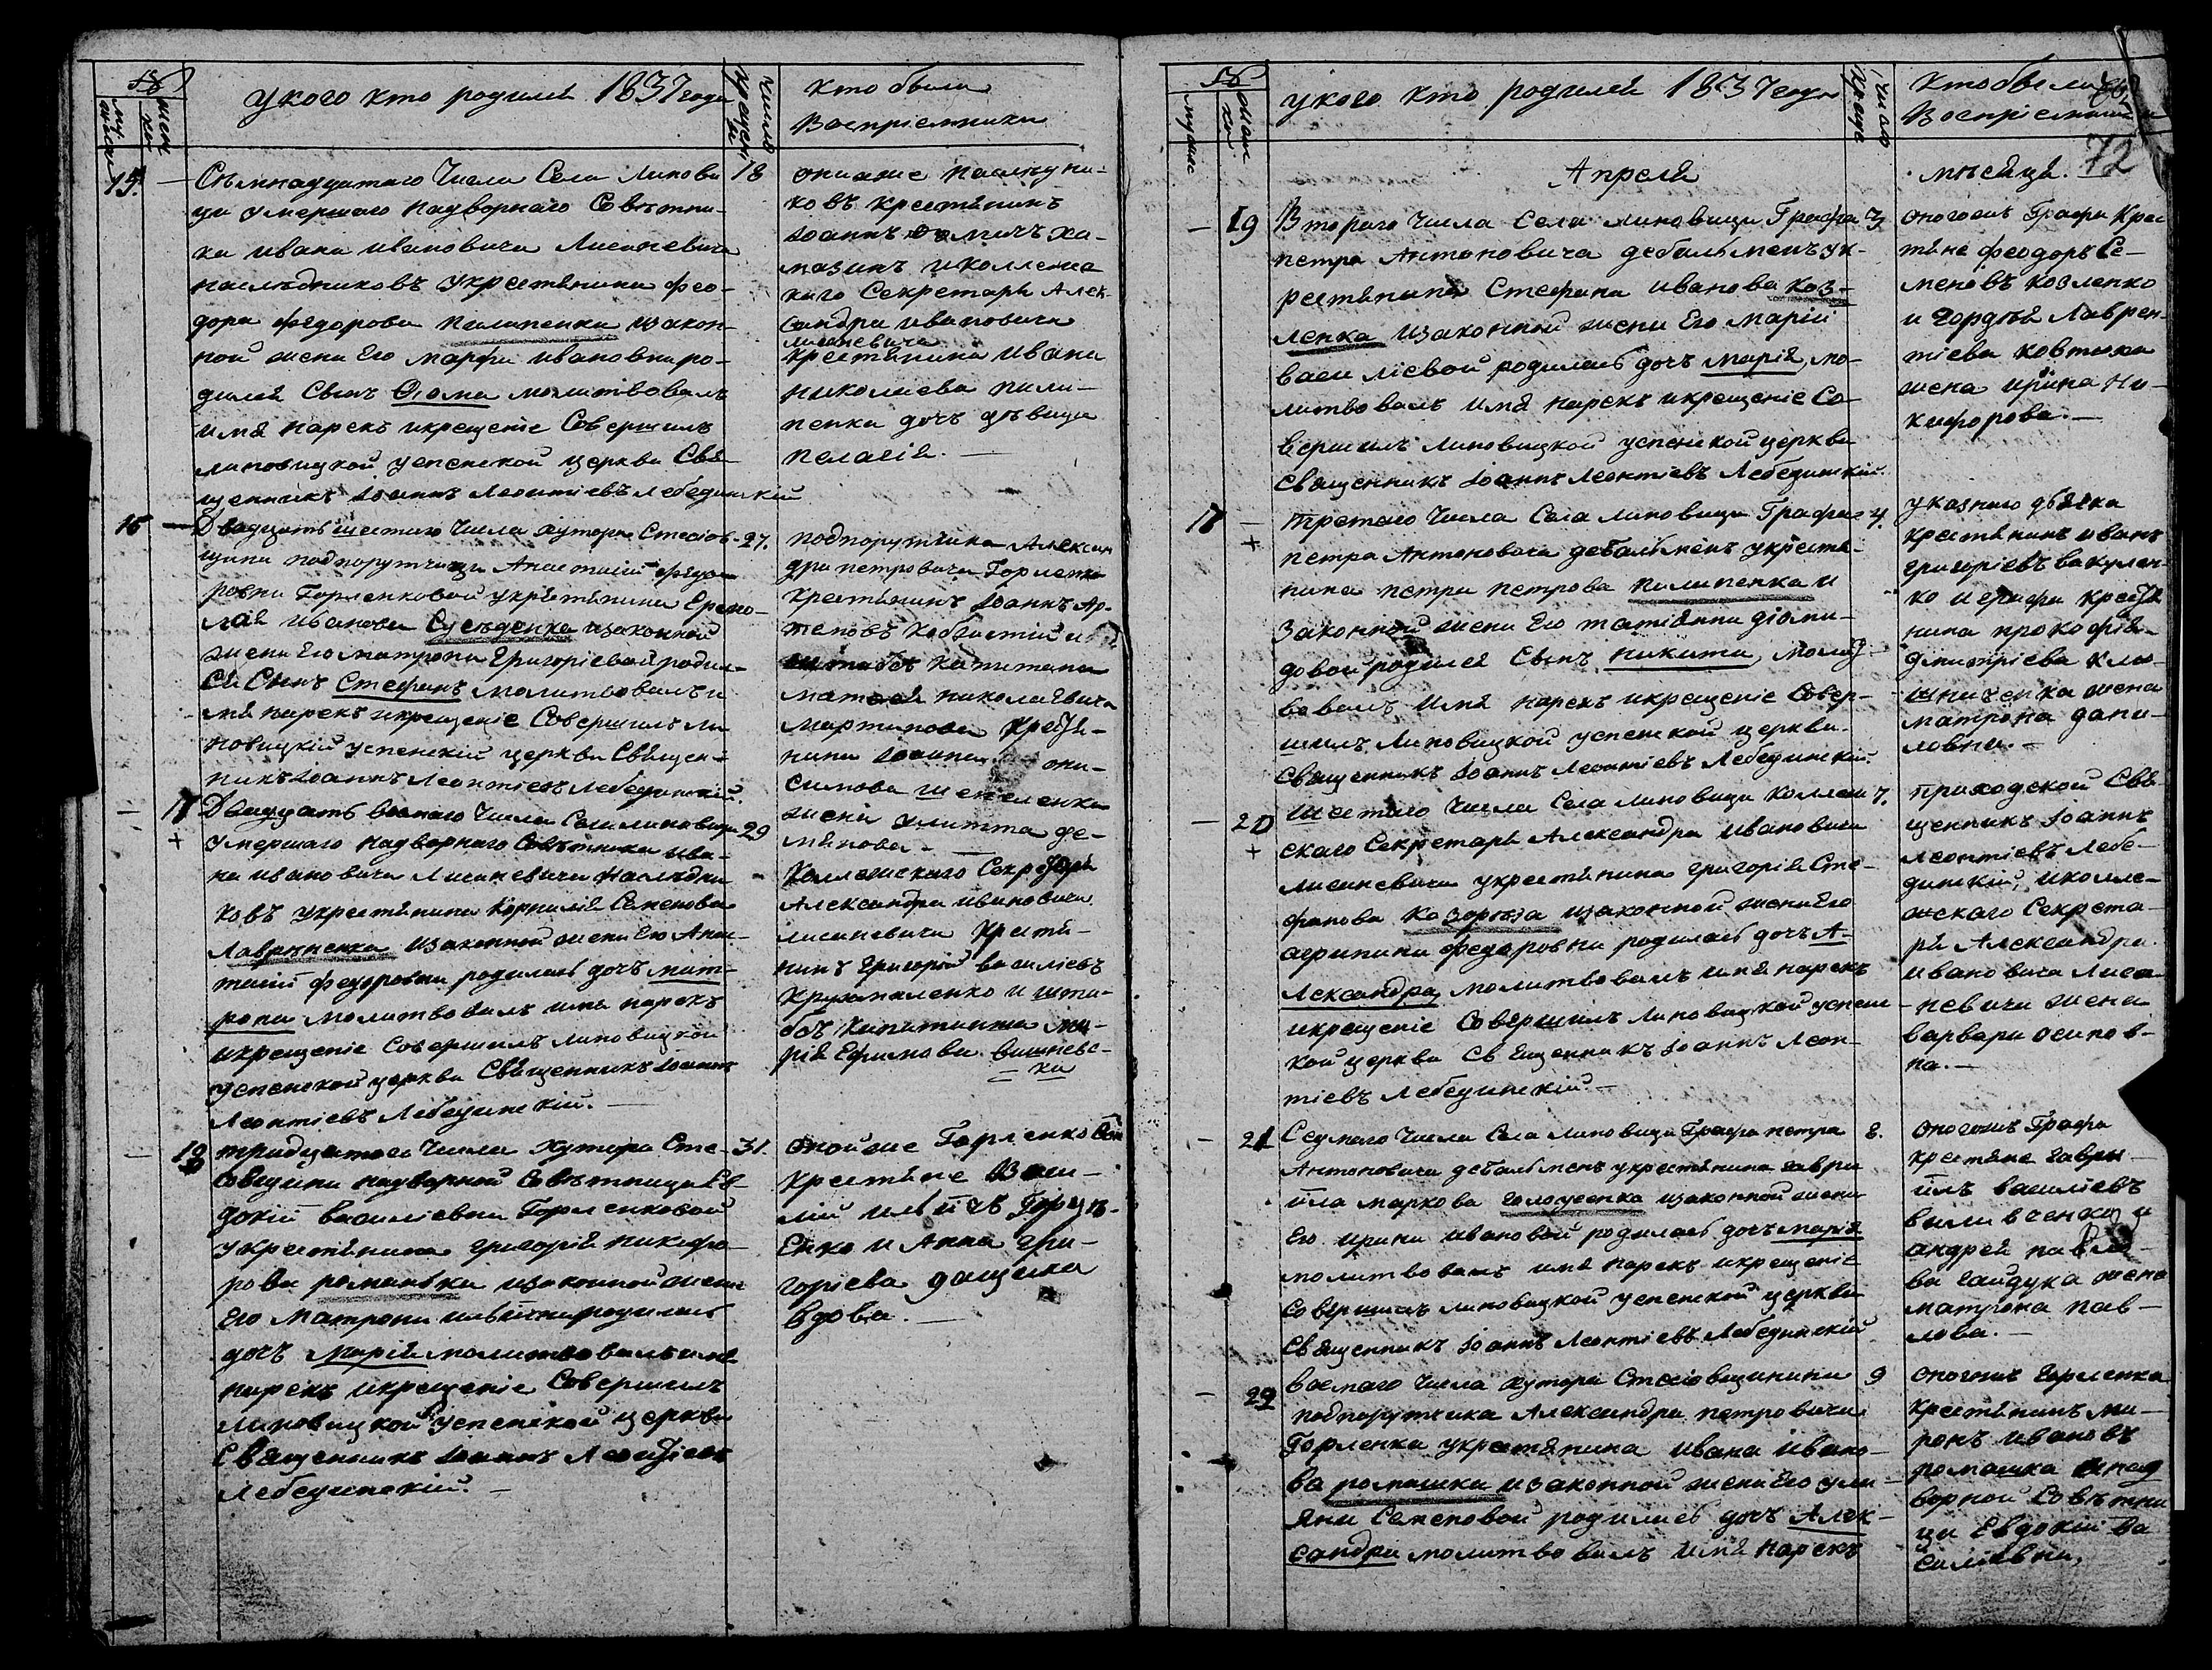 №
муж
жен
ско
у кого кто родился 1837 года
число крещен
Кто были
Восприемники
15.
Съмнадцатаго Числа Села Липови
18
ци умершаго Надворнаго Совътни-
ка ивана ивановича Лисаневича
наслъдниковъ укрестянина фео-
дора федорова Пилипенка изакон-
ной жены Его марфы ивановны ро-
дился Сынъ Фома молитвовалъ
имя Нарекъ икрещеніе Совершилъ
липовицкой успенской церкви Свя
щенникъ Іоаннъ Леонтіевъ Лебединскій
онихже Наслъдни-
ковъ крестянинъ
Іоаннъ
и коллежс
каго Секретаря Алек
сандра ивановича
лисаневича
крестянина ивана
николаева пили-
пенка дочъ дъвица
пелагія.
16
Двадцать шестаго Числа хутора Стасіов
27.
щини подпорутчици Анастасіи федо
ровни Горленковой укрестянина Ермо-
лая иванова Сусъденка изаконной
жены Его матрони григоріевой родил
ся Сынъ Стефанъ молитвовалъ и
мя нарекъ икрещеніе Совершилъ ли
повицкій успенскій церкви Священ-
никъ Іоаннъ Леонтіевъ Лебединскій.
подпорутчика Алексан
дра петровича Горленка
крестянинъ Іоаннъ Ар-
темовъ
штабсъ капитана
матвея николаевича
мартинова крестя-
нина Іоанна они-
симова
жена улитта де-
мянова.
17
+
Двадцать восмаго Числа Села липовици
29
умершаго Надворнаго Совътника ива-
на ивановича Лисаневича Наслъдни
ковъ укрестянина Корнилія Семенова
Лавриненка изаконной жены Его Анас
тасіи федоровни родилась дочъ матт
рона молитвовалъ имя нарекъ
икрещеніе Совершилъ липовицкой
успенской церкви Священникъ Іоаннъ
Леонтіевъ Лебединскій.
Коллежскаго Секретаря
Александра ивановича
лисаневича крестя-
нинъ григорій василіевъ
Крухмаленко и шта-
бсъ капитанша ма-
рія Ефимова вишневс-
ка
18
тридцатаго Числа Хутора Ста-
31.
совщини надворной Совътници Ев
докіи Василіевни Горленковой
укрестянина григорія никифо-
рова романька изаконной жени
Его Матрони родилась
дочъ Марія молитвовалъ имя
нарекъ икрещеніе Совершилъ
Липовицкой успенской церкви
Священникъ Іоаннъ Леонтіевъ
Лебединскій.
онойже Горленковой
крестяне Васи-
лій
Енко и Анна гри-
горіева дащенка
вдова.
№
мужес
женс
ко
у кого кто родился 1837 года
Число Креще
Кто были
Восприемники
72
Апреля
мъсяця.
19
Втораго Числа Села липовици Графа
3
петра Антоновича дебалменъ ук-
рестянина Стефана иванова Коз-
ленка изаконной жени Его маріи
василіевой родилась дочъ марія, мо-
литвовалъ имя нарекъ икрещеніе Со-
вершилъ липовицкой успенской церкви
Священникъ Іоаннъ Леонтіевъ Лебединскій.
оногожъ Графа Крес
тяне феодоръ Се-
меновъ козленко
и гордъя Лаврен-
тіева ковтуна
жена ирина Ни-
кифорова.
17
+
Третаго Числа Села липовици Графа
4.
петра Антоновича дебалменъ укрестя-
нина петра петрова Пилипенка и
законной жени Его татіянни
довой родился Сынъ Никита, молит
вовалъ имя нарекъ икрещеніе Совер-
шилъ Липовицкой успенской церкви
Священникъ Іоаннъ Леонтіевъ Лебединскій.
указнаго дьячка
крестянинъ иванъ
григоріевъ вакулен-
ко играфа крестя
нина прокофія
дмитріева клю-
шниченка жена
матрона дани-
ловна.
20
+
Шестаго Числа Села липовици Коллеж
7.
скаго Секретаря Александра ивановича
лисаневича укрестянина григорія Сте-
фанова Казоръза изаконной жени Его
агрипини федоровни родилась дочъ А-
лександра, молитвовалъ имя нарекъ
икрещеніе Совершилъ липовицкой успенс
кой церкви Священникъ Іоаннъ Леон-
тіевъ Лебединскій.
приходской Свя
щенникъ Іоаннъ
леонтіевъ Лебе-
динскій, иколле-
жскаго Секрета-
ря Александра
ивановича Лиса-
невича жена
варвара осипов-
на.
21
Седмаго Числа Села липовици Графа петра
8.
Антоновича дебалменъ укрестянина гаври
ила маркова голоусенка изаконной жени
Его ирини ивановой родилась дочъ марія
молитвовалъ имя нарекъ икрещеніе
Совершилъ липовицкой успенской церкви
Священникъ Іоаннъ Леонтіевъ Лебединскій
оногожъ Графа
крестяне гаври-
илъ василіевъ
и
андрея павло-
ва гайдука жена
матрона пав-
лова.
22
восмаго Числа хутора Стасіовщинини
9
подпорутчика Александра петровича
Горленка укрестянина ивана ивано-
ва ромашка изаконной жени Его ули-
яни Семеновой родилась дочъ Алек-
сандра молитвовалъ имя нарекъ
оногожъ Горленка
крестянинъ ми-
ронъ ивановъ
ромашка инад
ворной Совътни
ци Евдокіи ва
силіевни,